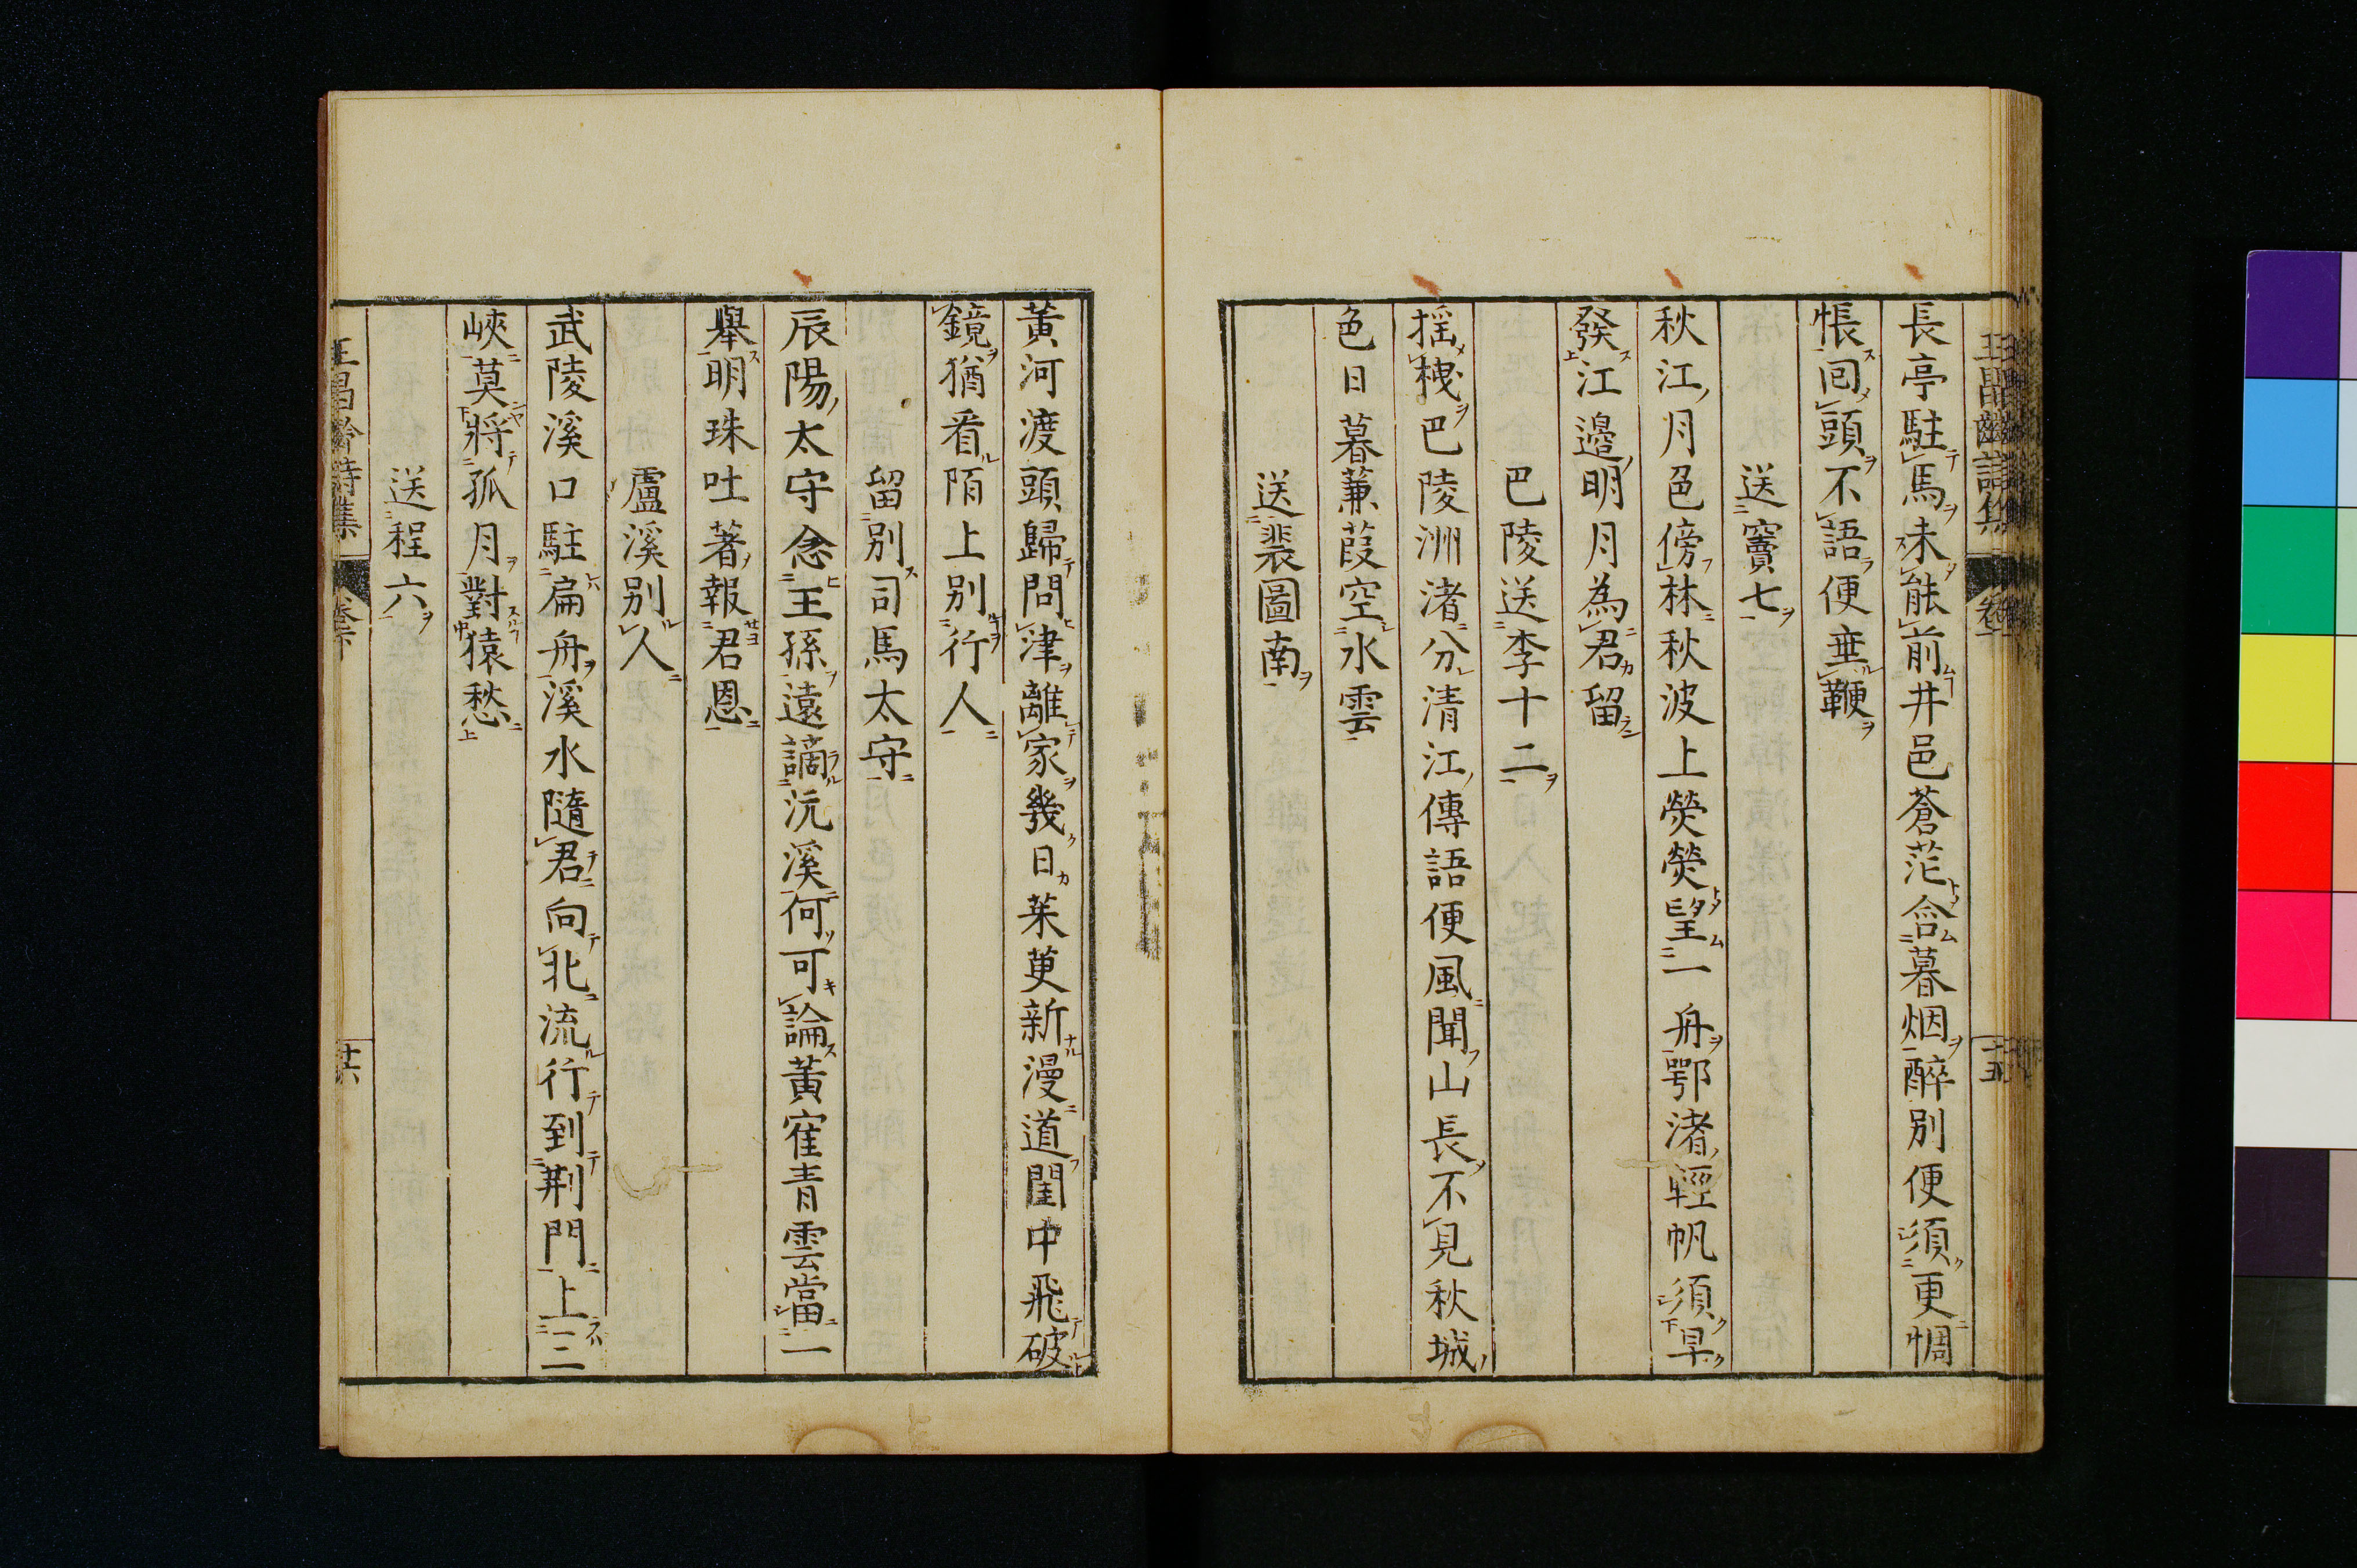 長亭駐馬未能前井邑蒼茫含暮烟醉別便須更惆
悵回頭不語便垂鞭
送竇七
秋江月色傍林秋波上熒熒望一舟鄂渚輕帆須早
發江邊明月為君留
巴陵送李十二
揺槐巴陵洲渚分清江傳語便風聞山長不見秋城
色日暮蒹葭空水雲
送裴圖南
黃河渡頭歸問津離家幾日茱萸新漫道閨中飛破
鏡猶看陌上別行人
留別司馬太守
辰陽太守念王孫遠謫沅溪何可論黃寉青雲當一
舉明珠吐著報君恩
盧溪別人
武陵溪口駐扁舟溪水隨君向北流行到荆門上三
峽莫將孤月對猿愁
送程六
王昌齡詩集